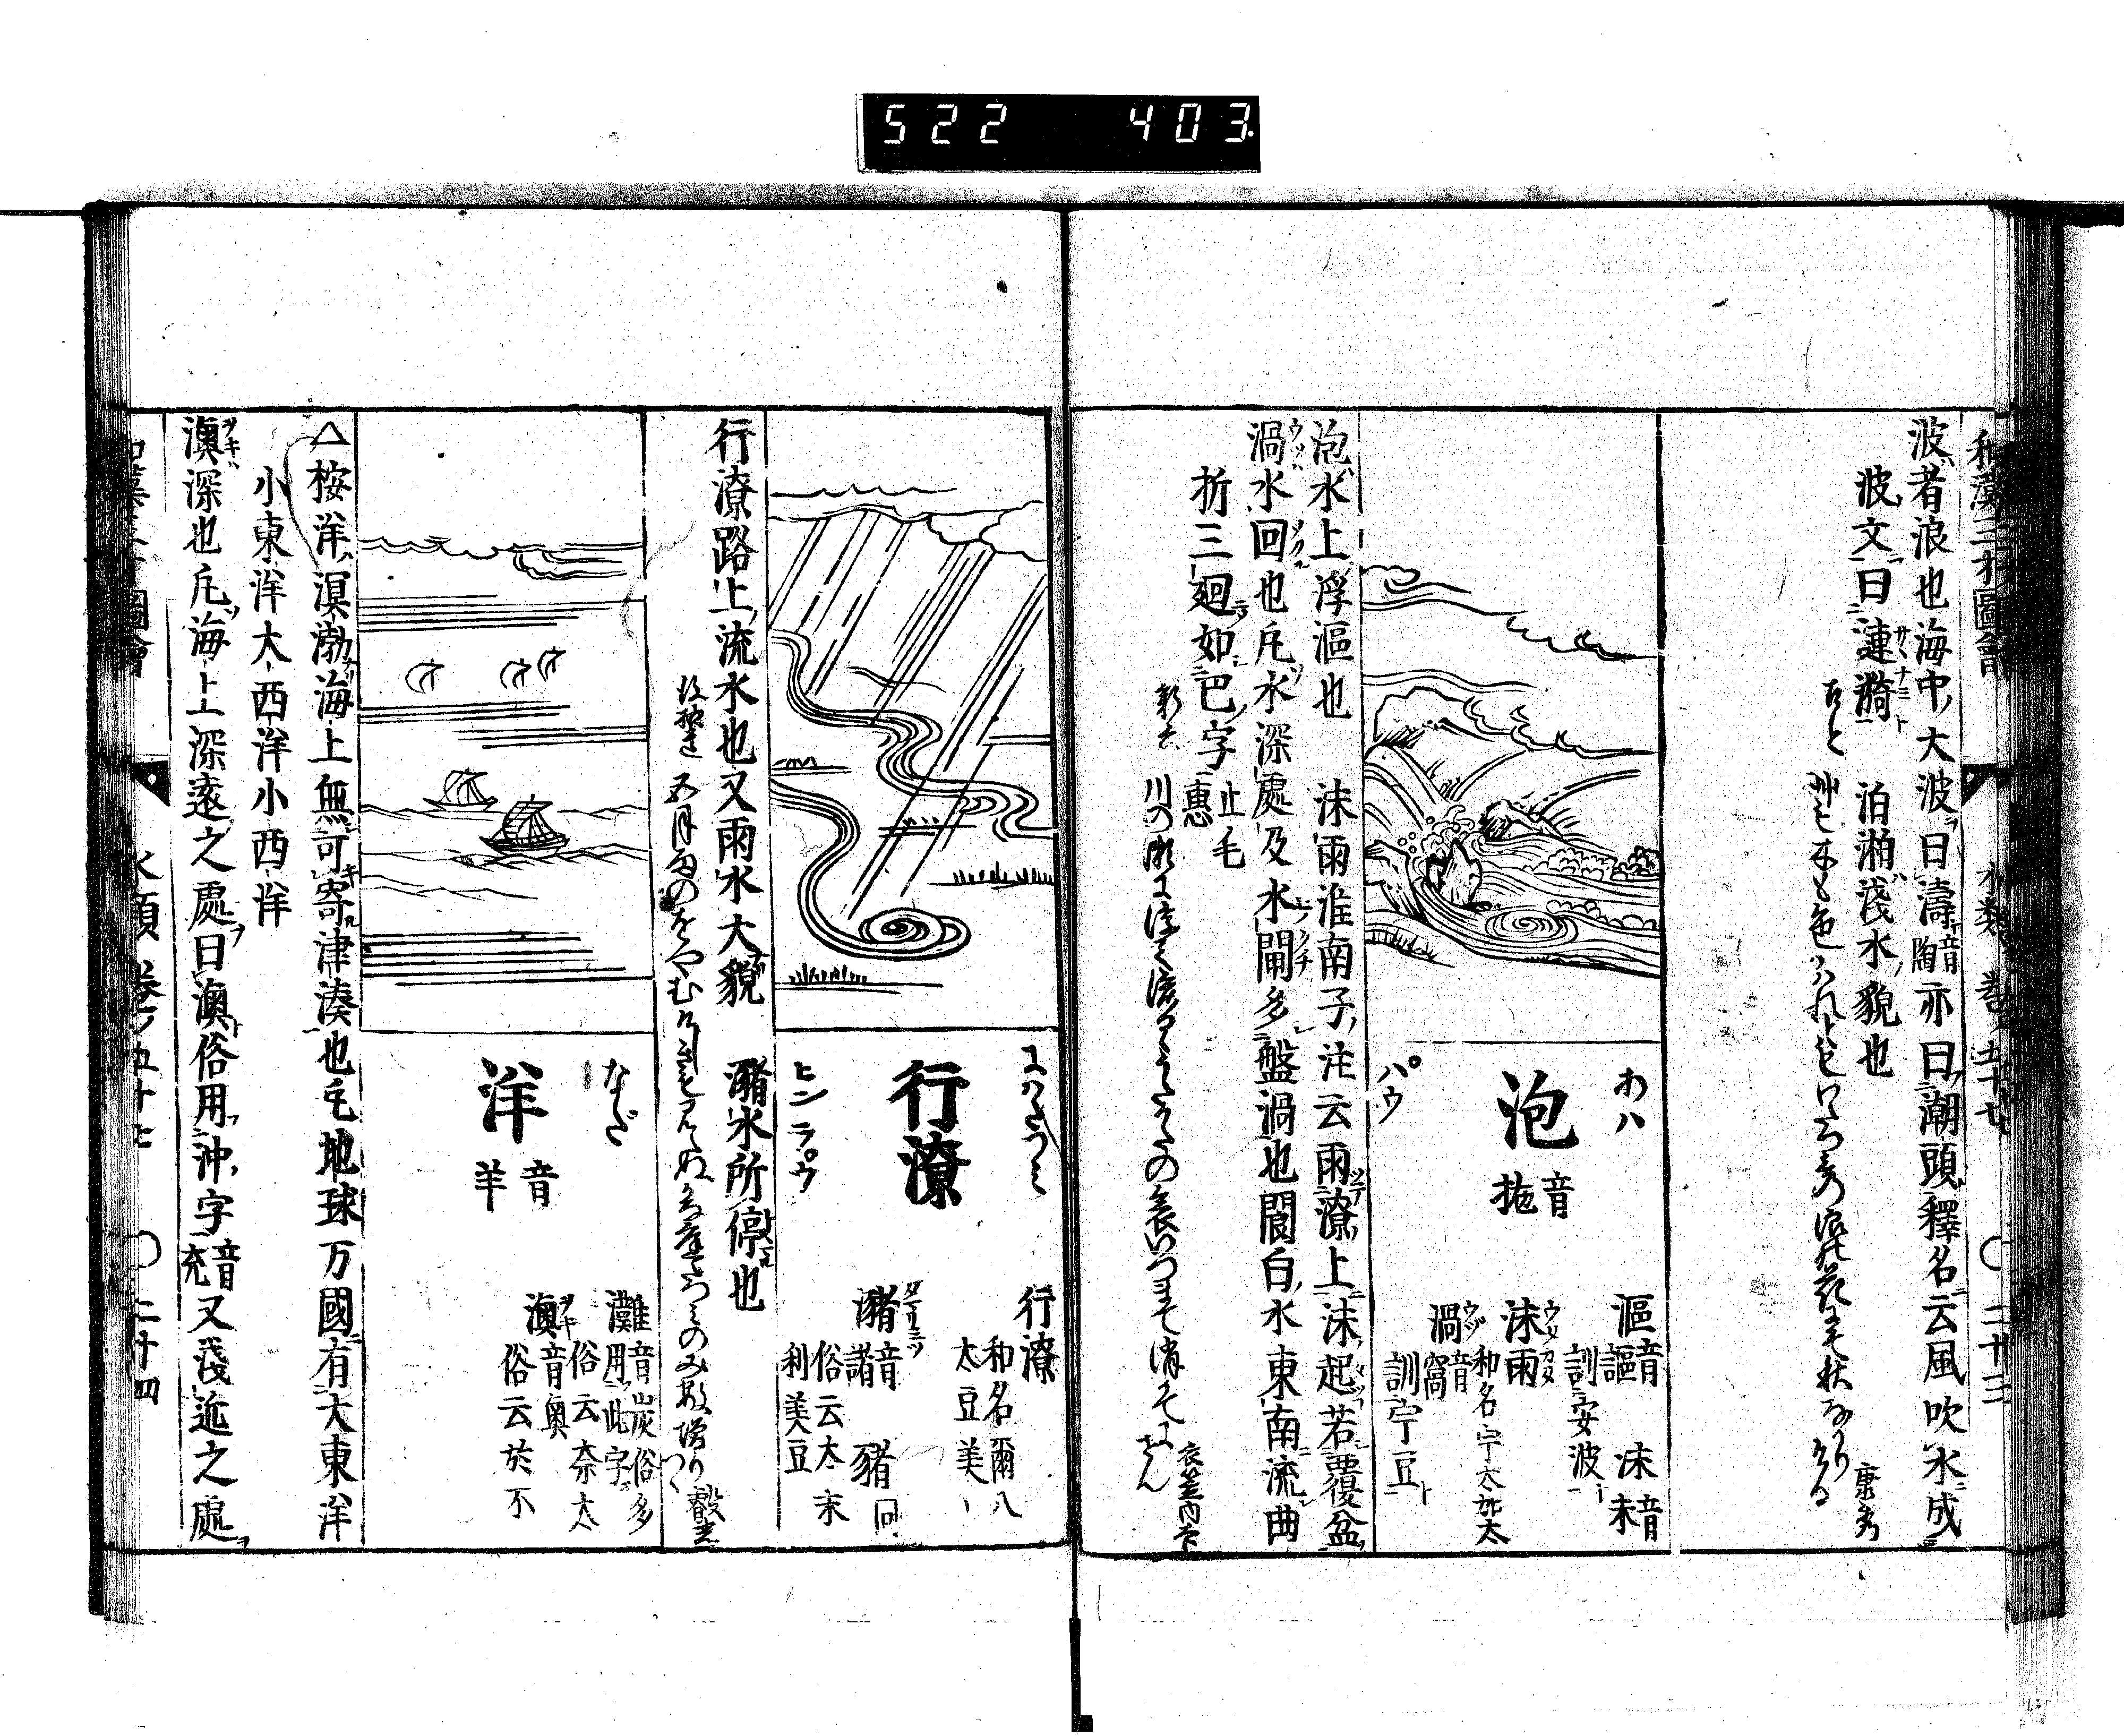 522 403
和漢三才圖會 水類 巻ノ五十七 〇 二十三
波者浪也海中大波曰濤音陶亦曰潮頭釋名云風吹水成
波文曰漣漪 泊㴞淺水貌也
古今 艸も木も色かはれともわたつ海の浪の花にそ秋なかりける 康秀
あハ
泡
音抛
パウ
漚音謳 沫音末
訓安波
沫雨 ウタカタ 和名宇太加太
渦 ウヅ 音窩
訓宇豆
泡水上浮漚也 沫雨淮南子注云雨潦上沫起若覆盆
渦水回也凡水深處及水閘多盤渦也閬白水東南流曲
折三廻如巴字 止毛惠
新六 川の瀬に 衣笠内大臣
にはたつミ
行潦
ヒンラ゜ウ
行潦 和名爾八太豆美
瀦 音諸 豬同
俗云太末利美豆
行潦路上流水也又雨水大貌 瀦水所停也
後撰
なだ
洋
音羊
灘音炭俗多用此字
俗云奈太
澳 ヲキ 音奥
俗云於不
△桉洋溟渤海上無可寄津湊也乇地球万國有大東洋
小東洋大西洋小西洋
澳深也凡海上深遠之處曰澳俗用沖字音充又淺近之處
和漢三才圖會 水類 巻ノ五十七 〇 二十四